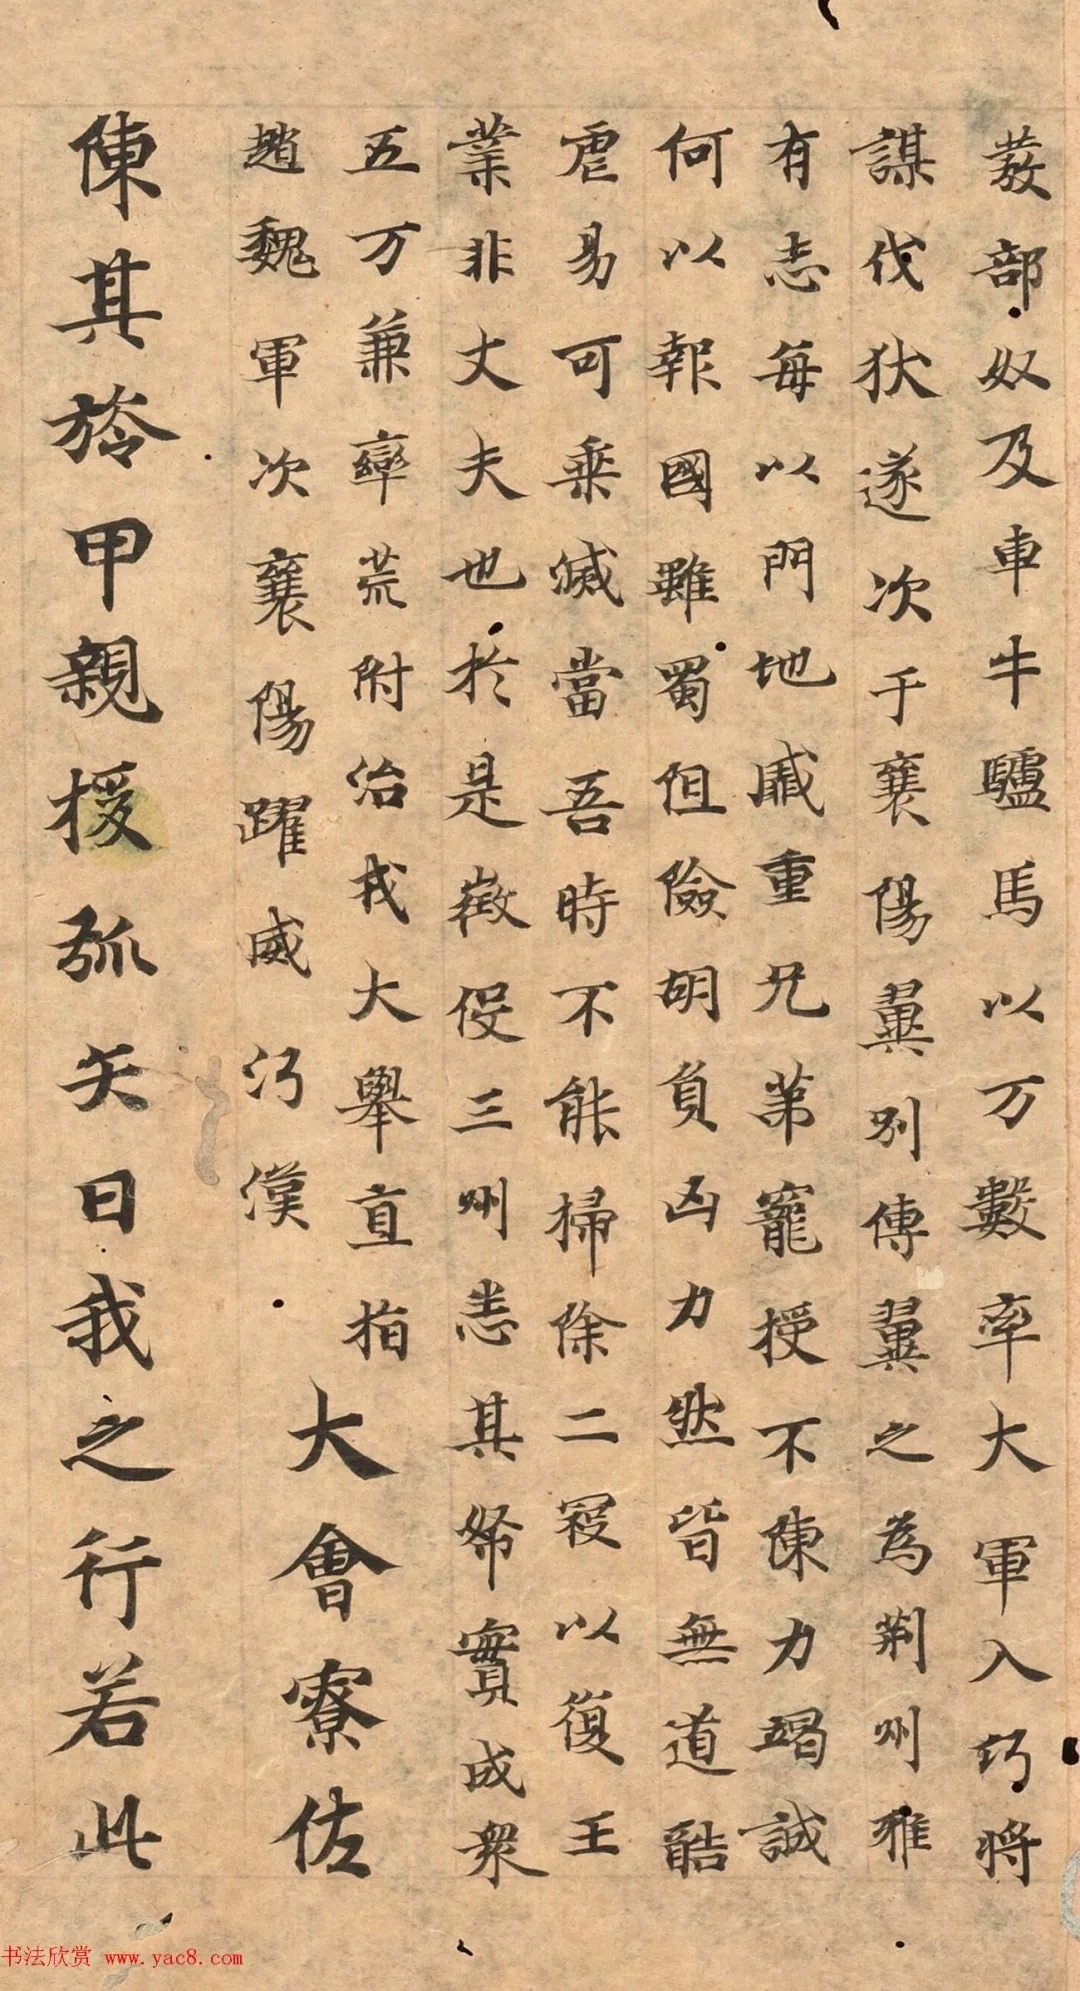 發部奴及車牛驢馬以万數率大軍入沔將
謀伐狄遂次于襄陽翼別傳翼之為荊州雅
有志每以門地戚重兄弟寵授不陳力竭誠
何以報國雖蜀阻險胡負凶力然皆無道酷
虐易可乗滅當吾時不能掃除二寇以復王
業非丈夫也於是徵役三州悉其帑實成衆
五万兼率荒附治戎大舉直指
趙魏軍次襄陽躍威沔漢
大會寮佐
陳其旍甲親授弧矢曰我之行若此
书法欣赏 www.yac8.com